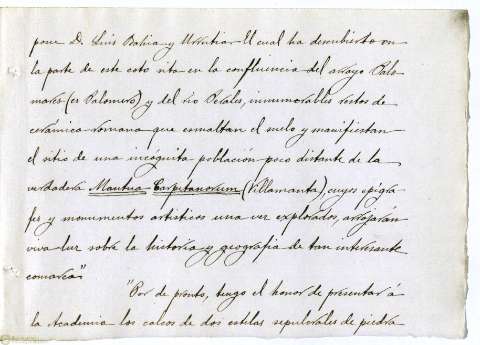 pone D. Luis Bahia y Urrutia. El cual ha descubierto en
la parte de este coto sita en la confluencia del arroyo Palo-
mares (es Palomero) y del rio Perales, innumerables restos de
cerámica romana que esmaltan el suelo y manifiestan
el sitio de una incógnita población poco distante de la
verdadera Mantua Carpitanorum (Villamanta), cuyos epigra-
fes y monumentos artisticos una vez explorados, arrojarán
viva luz sobre la historia y geografia de tan interesante
comarca."
"Por de pronto, tengo el honor de presentar á
la Academia los calcos de dos estelas sepulcrales de piedra